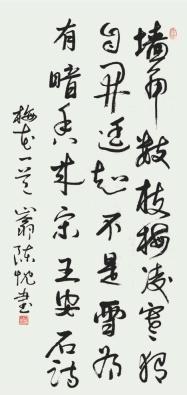 墙角数枝梅凌寒独
自开遥知不是雪为
有暗香来宋王安石诗
梅花一首 陈忱书